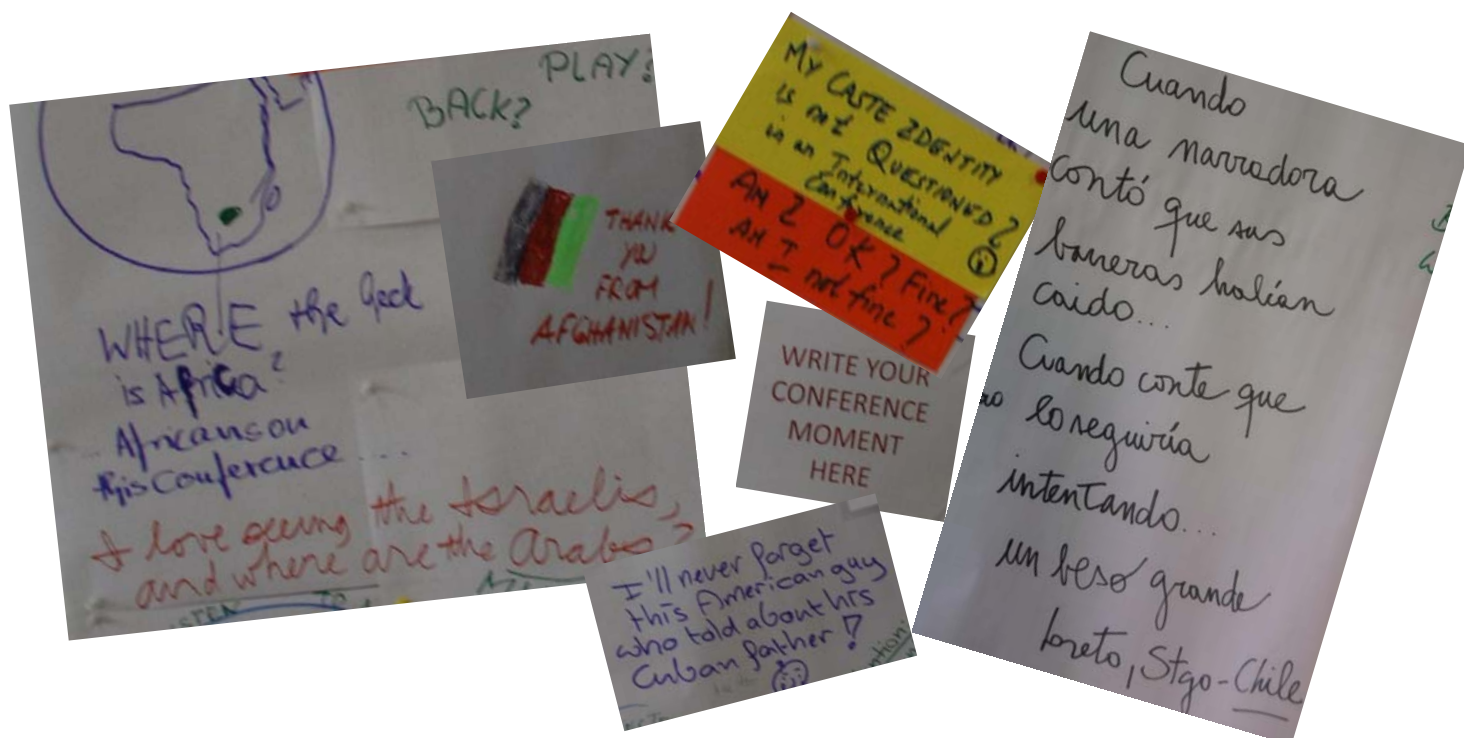 PLAY?
BACK?
WHERE the Geck
is Africa?
Africans on
this Conference ....
I love seeing the Israelis,
and where are the Arabs?
TO
THANK
YOU
FROM
AFGHANISTAN!
MY CASTE IDENTITY
is not QUESTIONED?
in an International
Conference
AM I OK? Fine?
AM I not fine?
WRITE YOUR
CONFERENCE
MOMENT
HERE
I'll never forget
this American guy
who told about his
Cuban father!
Cuando
una narradora
contó que sus
barreras habían
caido...
Cuando conte que
lo seguiría
intentando...
un beso grande
Loreto, Stgo-Chile